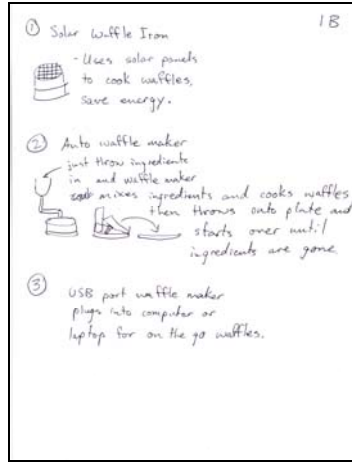 1B
① Solar Waffle Iron
- Uses solar panels
to cook waffles,
save energy.
② Auto waffle maker
just throw ingredients
in and waffle maker
mixes ingredients and cooks waffles
then throws onto plate and
starts over until
ingredients are gone
③ USB port waffle maker
plugs into computer or
laptop for on the go waffles.